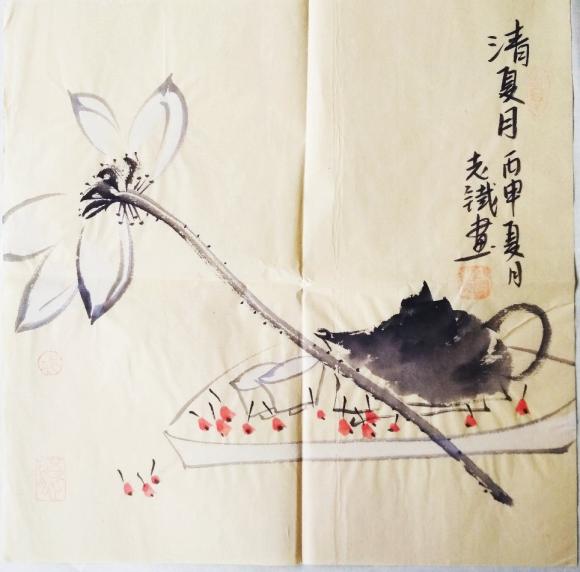 清夏月
丙申夏月
老鐵畫